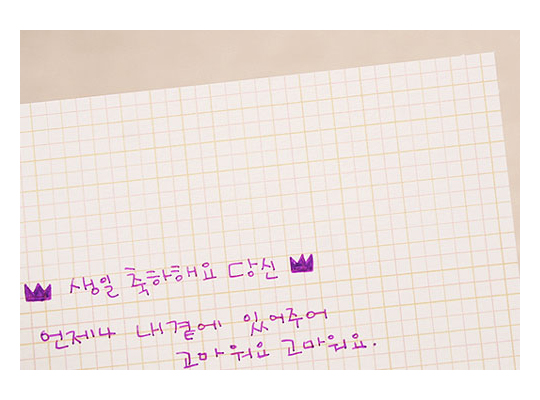 생일 축하해요 당신
언제나 내곁에 있어주어
고마워요 고마워요.